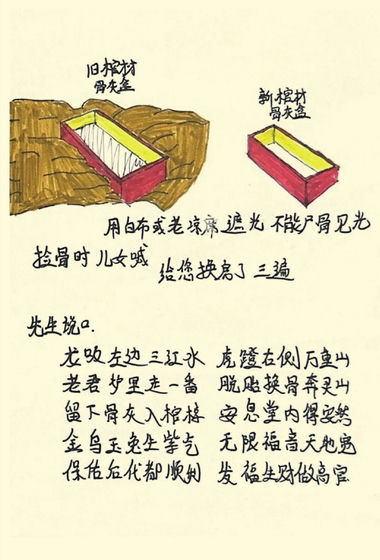 旧棺材
骨灰盒
新棺材
骨灰盒
用白布或老凉席遮光 不能尸骨见光
捡骨时 儿女喊
给您换房了 三遍
先生说:
龙吸左边三江水 虎镗右侧万重山
老君炉里走一番 脱胎换骨奔灵山
留下骨灰入棺椁 安息堂内得安然
金乌玉兔生紫气 无限福音天地宽
保佑后代都顺利 发福生财做高官